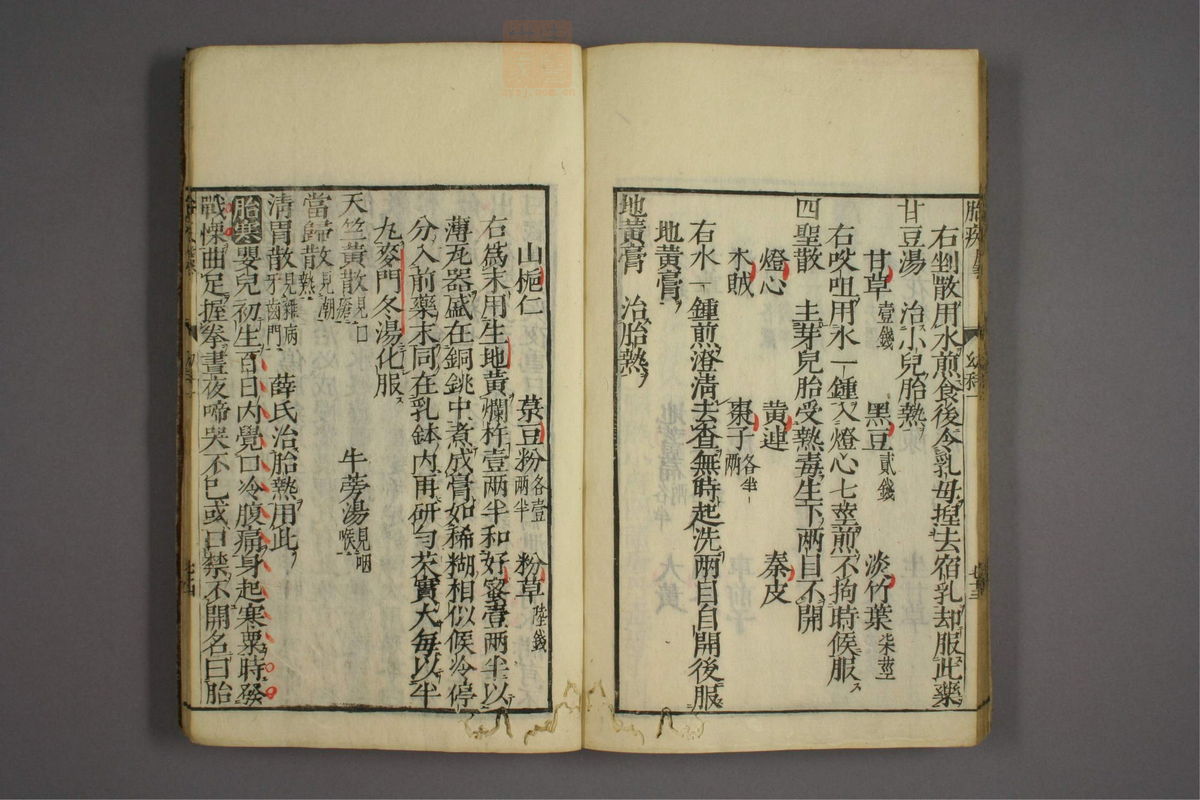 胎疾
右剉散用水煎食後令乳母捏去宿乳却服此藥
甘豆湯　治小兒胎熱
甘草壹錢　黑豆貳錢　淡竹葉柒莖
右㕮咀用水一鍾入燈心七莖煎不拘時候服
四聖散　主芽兒胎受熱毒生下兩目不開
燈心　黃連　秦皮
木賊　棗子各半兩
右水一鍾煎澄清去査無時起洗兩目自開後服
地黃膏
地黃膏　治胎熱
山梔仁　菉豆粉各壹兩半　粉草陸錢
右爲末用生地黃爛杵壹兩半和好蜜壹兩半以
薄瓦器盛在銅銚中煮成膏如稀糊相似候冷停
分入前藥末同在乳鉢內再研勻芡實大每以半
九麥門冬湯化服
天竺黃散見口瘡　牛蒡湯見咽喉
當歸散見潮熱
清胃散見雜病牙齒門　薛氏治胎熱用此
胎寒嬰兒初生百日內覺口冷腹痛身起寒粟時發
戰慄曲足握拳晝夜啼哭不已或口禁不開名曰胎